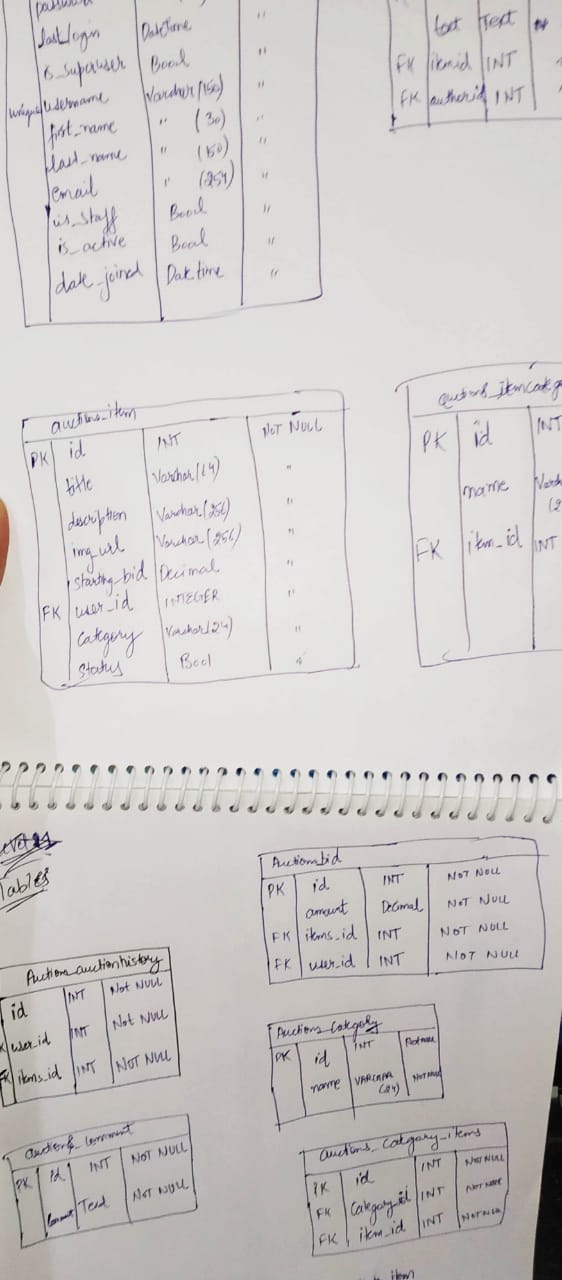 password
last_login DateTime "
is_superuser Bool "
unique username Varchar(150) "
first_name " (30) "
last_name " (150) "
email " (254) "
is_staff Bool "
is_active Bool "
date_joined Datetime "
text Text
FK itemid INT
FK authorid INT
auctions_item
PK id INT NOT NULL
title Varchar(64) "
description Varchar(256) "
img_url Varchar(256) "
starting_bid Decimal "
FK user_id INTEGER "
category Varchar(24) "
status Bool "
auctions_itemcateg
PK id INT
name Varch
(2
FK item_id INT
Tables
Auctions_bid
PK id INT NOT NULL
amount Decimal NOT NULL
FK items_id INT NOT NULL
FK user_id INT NOT NULL
Auctions_auctionhistory
id INT Not NULL
K user_id INT Not NULL
FK items_id INT NOT NULL
Auctions_Category
PK id INT Not NULL
name VARCHAR NOT NULL
(24)
auctions_comment
PK id INT NOT NULL
Comment Text NOT NULL
auctions_category_items
PK id INT NOT NULL
FK Category_id INT NOT NULL
FK item_id INT NOT NULL
item